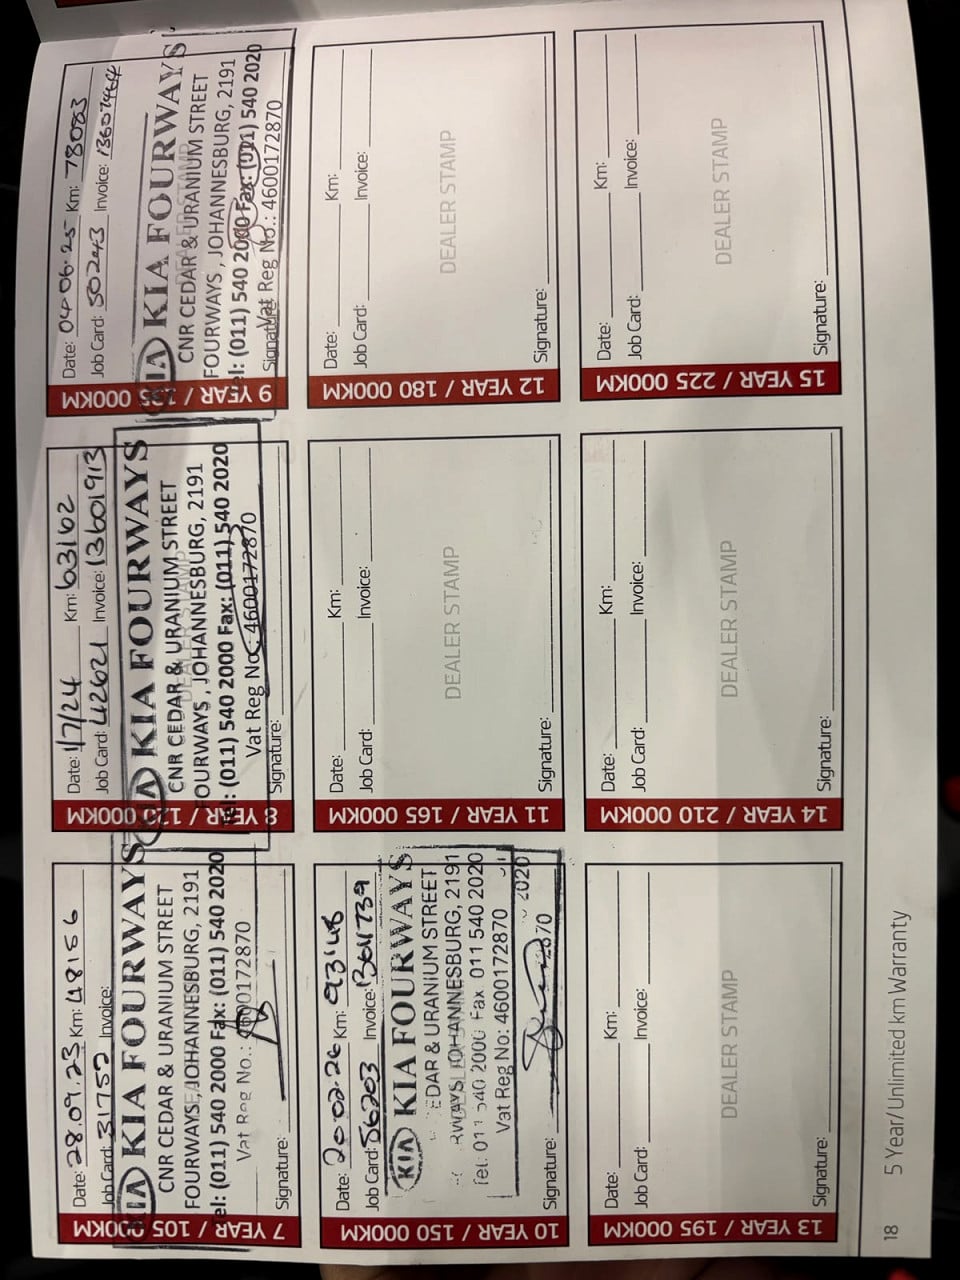 7 YEAR / 105 000KM
Date: 28.09.23 Km: 48156
Job Card: 31757 Invoice:
KIA KIA FOURWAYS
CNR CEDAR & URANIUM STREET
FOURWAYS, JOHANNESBURG, 2191
Tel: (011) 540 2000 Fax: (011) 540 2020
Vat Reg No.: 4600172870
Signature:
8 YEAR / 120 000KM
Date: 1/7/24 Km: 63162
Job Card: 42621 Invoice: 13601913
KIA KIA FOURWAYS
CNR CEDAR & URANIUM STREET
DEALER STAMP
FOURWAYS, JOHANNESBURG, 2191
Tel: (011) 540 2000 Fax: (011) 540 2020
Vat Reg No.: 4600172870
Signature:
9 YEAR / 135 000KM
Date: 04.06.25 Km: 78083
Job Card: 50243 Invoice: 13607464
KIA KIA FOURWAYS
DEALER STAMP
CNR CEDAR & URANIUM STREET
FOURWAYS, JOHANNESBURG, 2191
Tel: (011) 540 2000 Fax: (011) 540 2020
Vat Reg No.: 4600172870
Signature:
10 YEAR / 150 000KM
Date: 20.02.26 Km: 93148
Job Card: 56203 Invoice: 13611739
KIA KIA FOURWAYS
CEDAR & URANIUM STREET
JOHANNESBURG, 2191
Tel: 011 540 2000 Fax 011 540 2020
Vat Reg No: 4600172870
2020
2870
Signature:
11 YEAR / 165 000KM
Date: Km:
Job Card: Invoice:
DEALER STAMP
Signature:
12 YEAR / 180 000KM
Date: Km:
Job Card: Invoice:
DEALER STAMP
Signature:
13 YEAR / 195 000KM
Date: Km:
Job Card: Invoice:
DEALER STAMP
Signature:
14 YEAR / 210 000KM
Date: Km:
Job Card: Invoice:
DEALER STAMP
Signature:
15 YEAR / 225 000KM
Date: Km:
Job Card: Invoice:
DEALER STAMP
Signature:
18 5 Year/Unlimited km Warranty